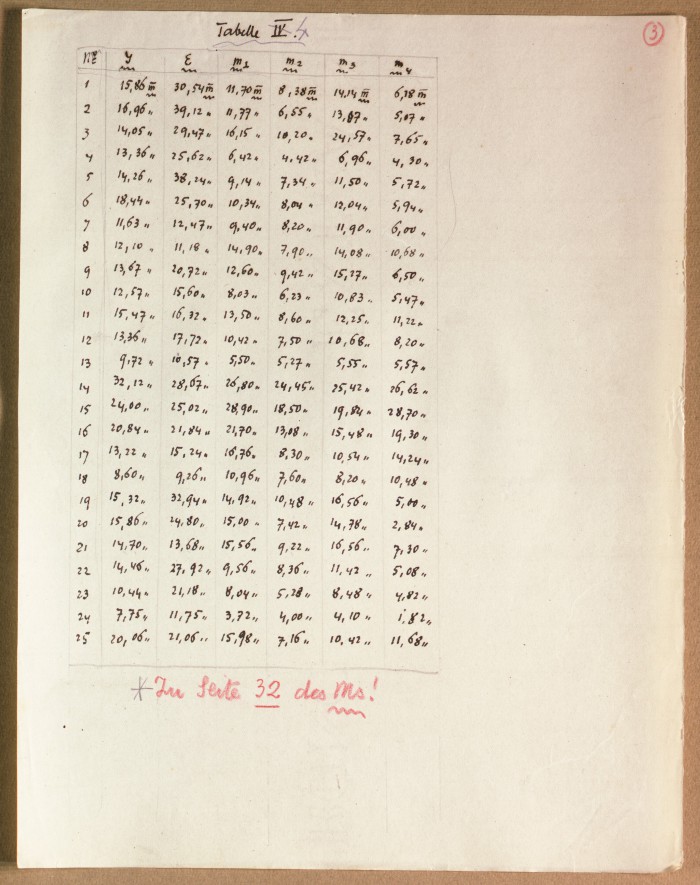 Tabelle IV. 4
3
No y ε m1 m2 m3 m4
1 15,86 m 30,54 m 11,70 m 8,38 m 14,14 m 6,18 m
2 16,96 „ 39,12 „ 11,77 „ 6,55 „ 13,87 „ 5,07 „
3 14,05 „ 29,47 „ 16,15 „ 10,20 „ 24,57 „ 7,65 „
4 13,36 „ 25,62 „ 6,42 „ 4,42 „ 6,96 „ 4,30 „
5 14,26 „ 38,24 „ 9,14 „ 7,34 „ 11,50 „ 5,72 „
6 18,44 „ 25,70 „ 10,34 „ 8,04 „ 12,04 „ 5,94 „
7 11,63 „ 12,47 „ 9,40 „ 8,20 „ 11,90 „ 6,00 „
8 12,10 „ 11,18 „ 14,90 „ 7,90 „ 14,08 „ 10,68 „
9 13,67 „ 20,72 „ 12,60 „ 9,42 „ 15,27 „ 6,50 „
10 12,57 „ 15,60 „ 8,03 „ 6,23 „ 10,83 „ 5,47 „
11 15,47 „ 16,32 „ 13,50 „ 8,60 „ 12,25 „ 11,22 „
12 13,36 „ 17,72 „ 10,42 „ 7,50 „ 10,68 „ 8,20 „
13 9,72 „ 10,57 „ 5,50 „ 5,27 „ 5,55 „ 5,57 „
14 32,12 „ 28,67 „ 26,80 „ 24,45 „ 25,42 „ 26,62 „
15 24,00 „ 25,02 „ 28,90 „ 18,50 „ 19,84 „ 28,70 „
16 20,84 „ 21,84 „ 21,70 „ 13,08 „ 15,48 „ 19,30 „
17 13,22 „ 15,24 „ 16,76 „ 8,30 „ 10,54 „ 14,24 „
18 8,60 „ 9,26 „ 10,96 „ 7,60 „ 8,20 „ 10,48 „
19 15,32 „ 32,94 „ 14,92 „ 10,48 „ 16,56 „ 5,00 „
20 15,86 „ 24,80 „ 15,00 „ 7,42 „ 14,78 „ 2,84 „
21 14,70 „ 13,68 „ 15,56 „ 9,22 „ 16,56 „ 7,30 „
22 14,46 „ 27,92 „ 9,56 „ 8,36 „ 11,42 „ 5,08 „
23 10,44 „ 21,18 „ 8,04 „ 5,28 „ 8,48 „ 4,82 „
24 7,75 „ 11,75 „ 3,72 „ 4,00 „ 4,10 „ 1,82 „
25 20,06 „ 21,06 „ 15,98 „ 7,16 „ 10,42 „ 11,68 „
* Zu Seite 32 des Ms!